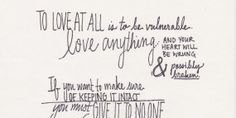 TO LOVE AT ALL is to be vulnerable.
love anything, AND YOUR
HEART WILL
BE WRUNG
& possibly
broken.
If you want to make sure
OF KEEPING IT INTACT
you must GIVE IT TO NO ONE